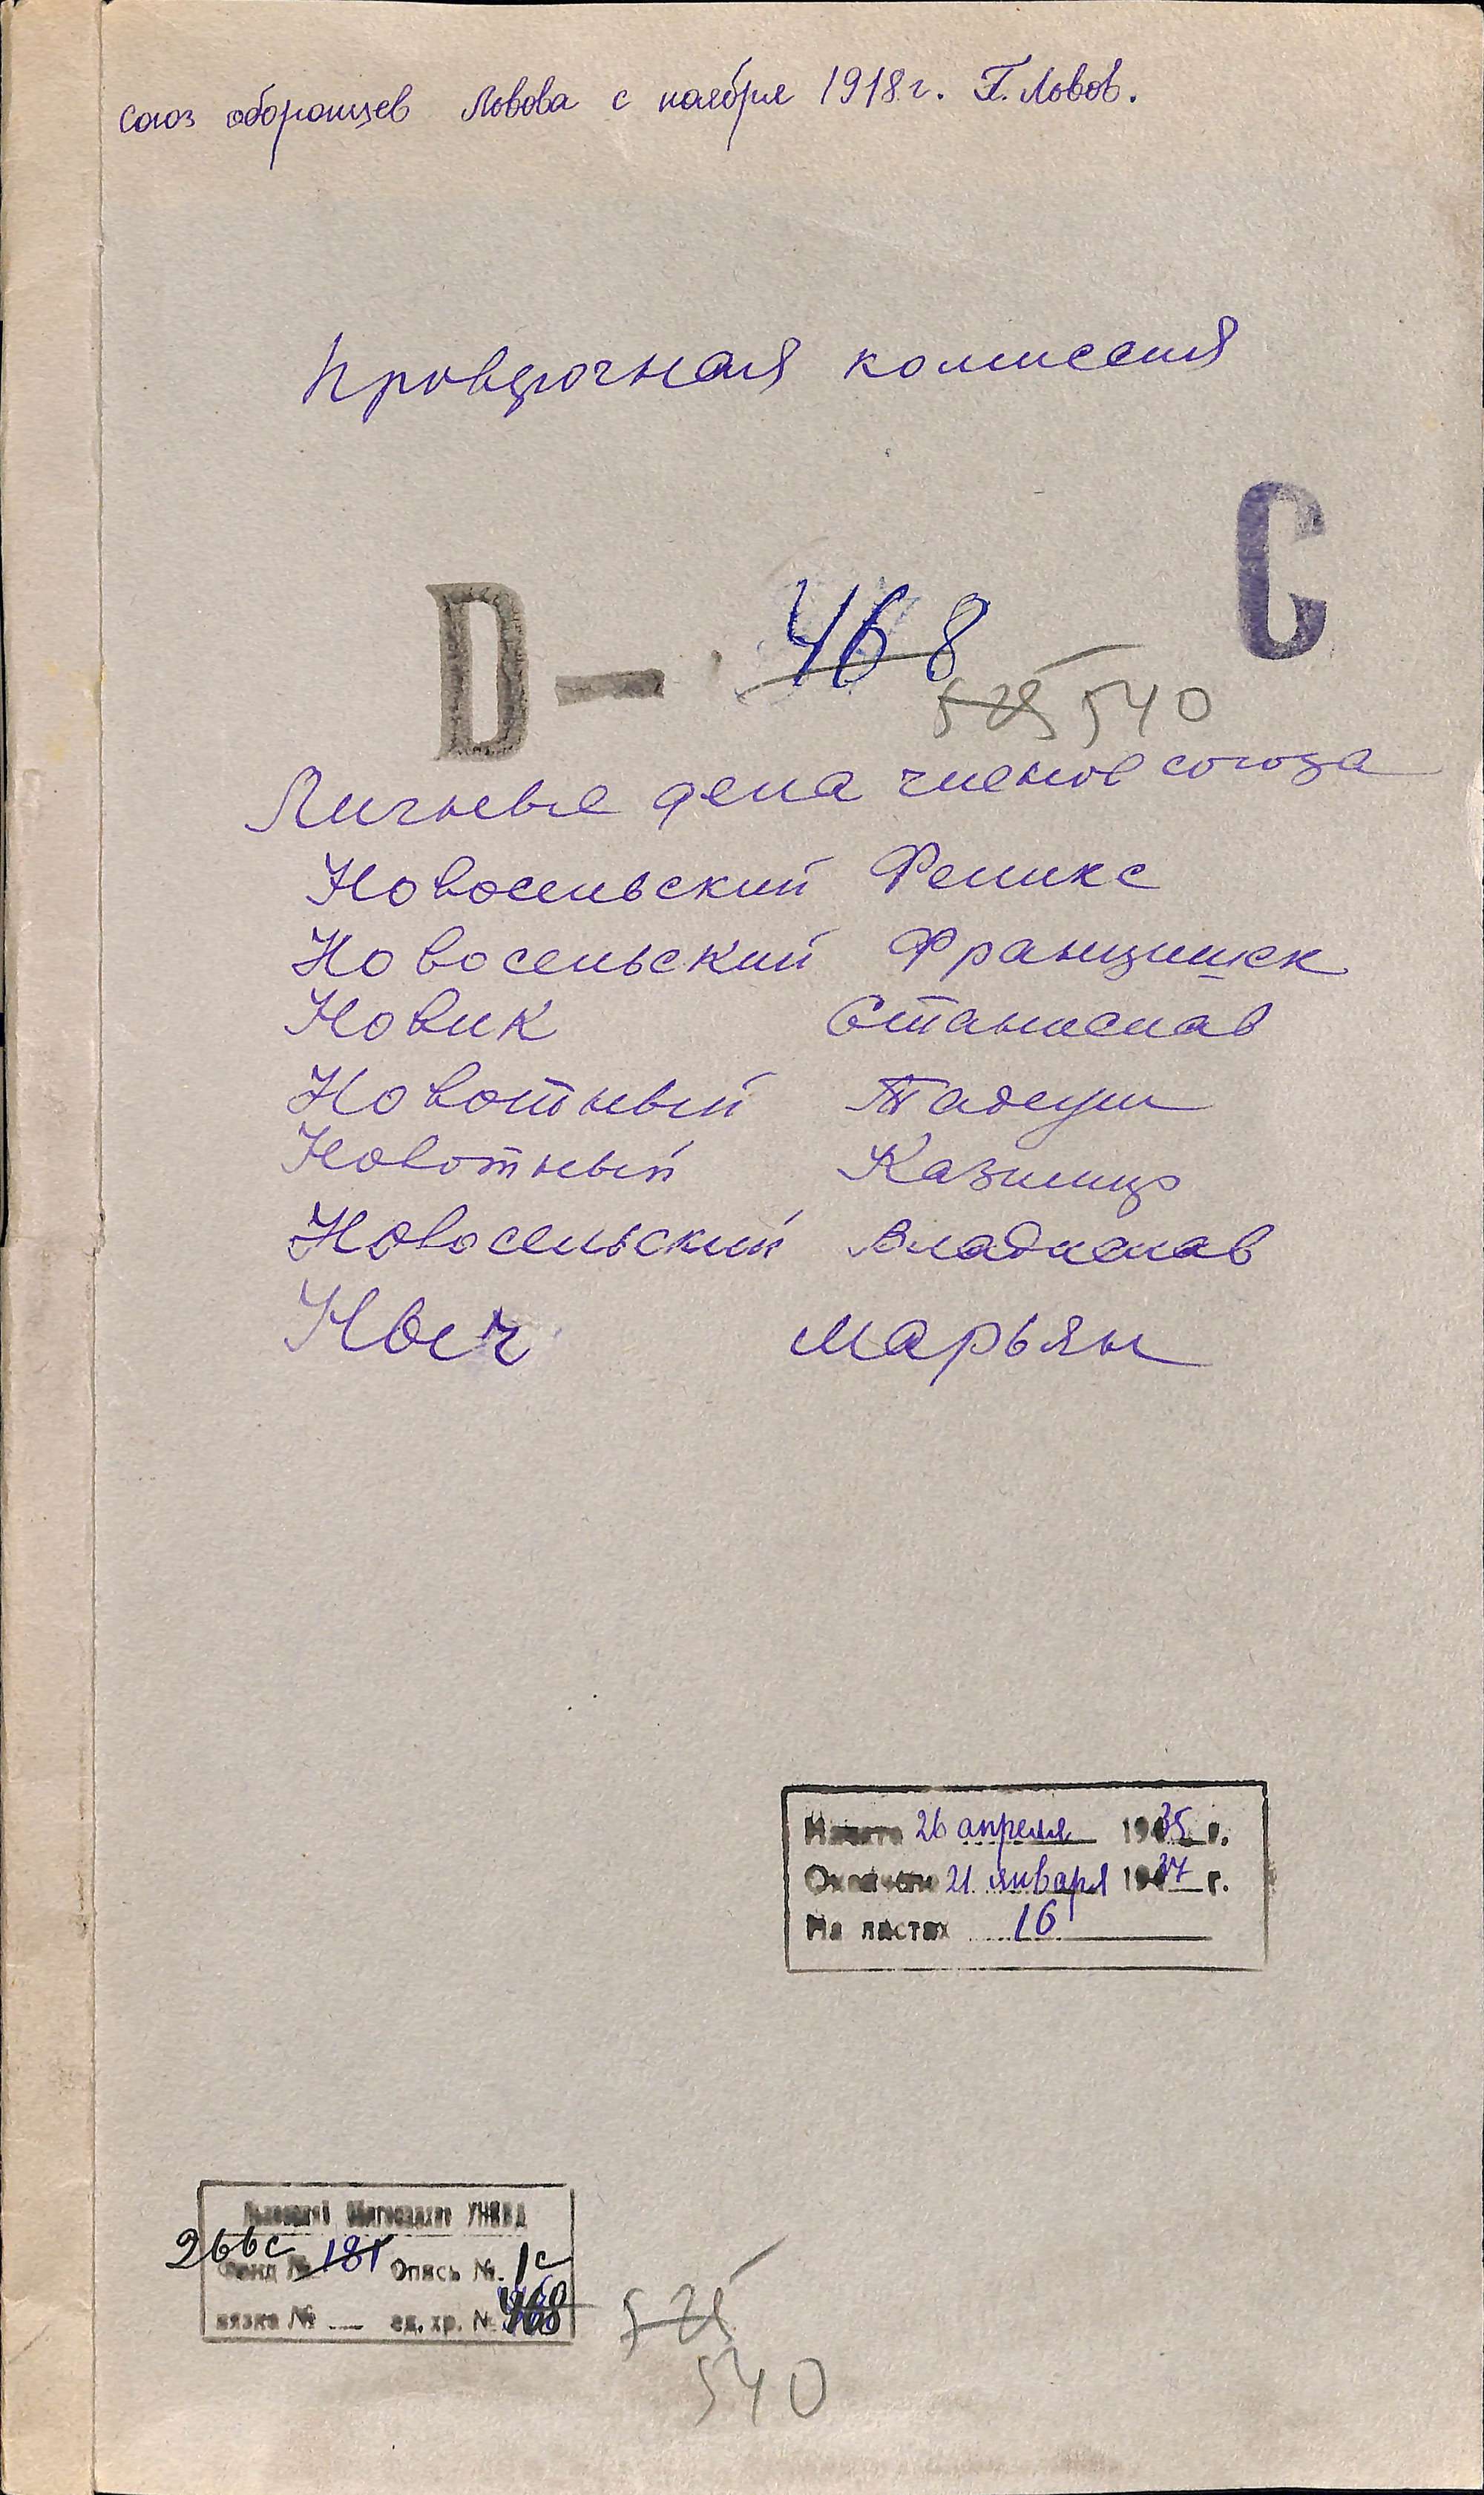 Союз оборонцев Львова с ноября 1918 г. Г. Львов.
Проверочная комиссия
С
D — 468
525 540
Личные дела членов союза
Новосельский Феликс
Новосельский Францишек
Новик Станислав
Новотный Тадеуш
Новотный Казимир
Новосельский Владислав
Ныч Марьян
Начато 26 апреля 1935 г.
Окончено 21 января 1937 г.
На листах 16
Львовский Облгосархив УНКВД
266с
Фонд № 181 Опись № 1с
вязка № — ед. хр. № 468
525
540